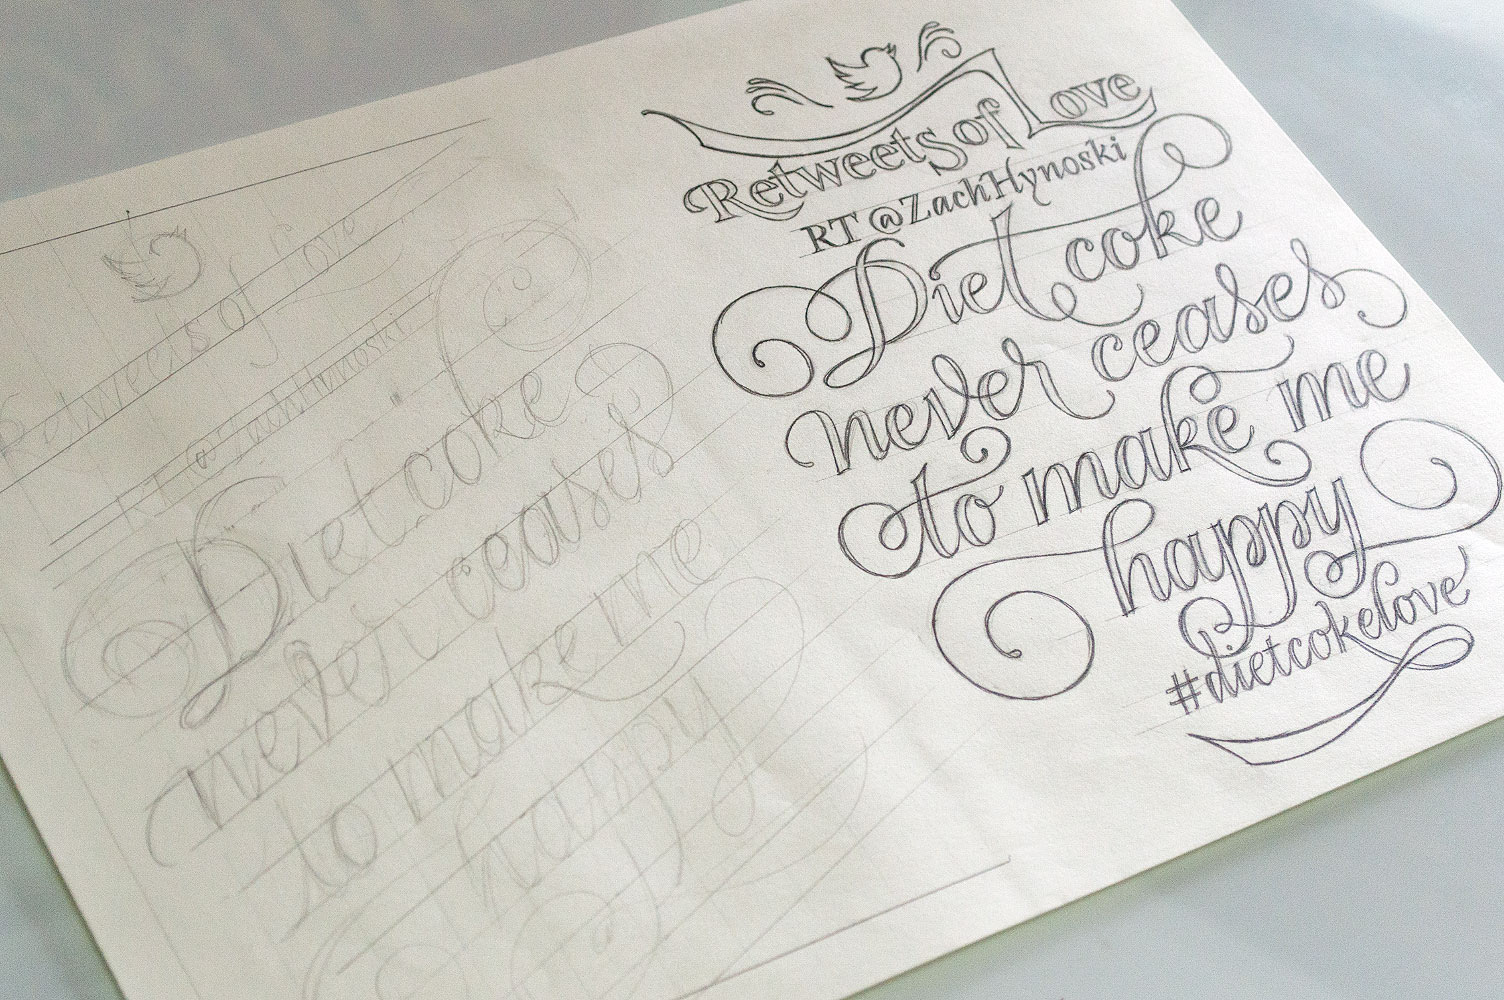 Retweets of Love
RT @ZachHynoski
Diet coke
never ceases
to make me
happy
#dietcokelove
Retweets of love
RT @ZachHynoski
Diet coke
never ceases
to make me
happy